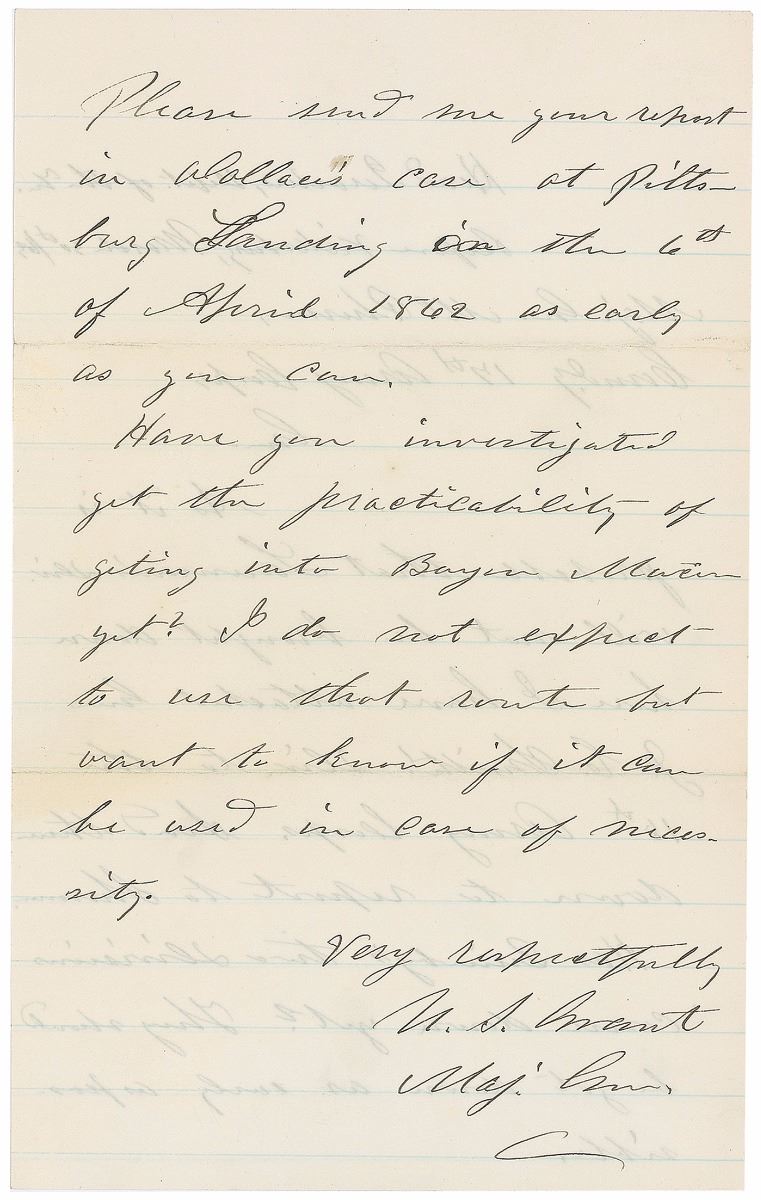 Please send me your report
in Wallace's case at Pitts-
burg Landing on the 6th
of April 1862 as early
as you can.
Have you investigated
yet the practicability of
geting into Bayou Macon
yet? I do not expect
to use that route but
want to know if it can
be used in case of neces-
sity.
Very respectfully
U. S. Grant
Maj. Gen.